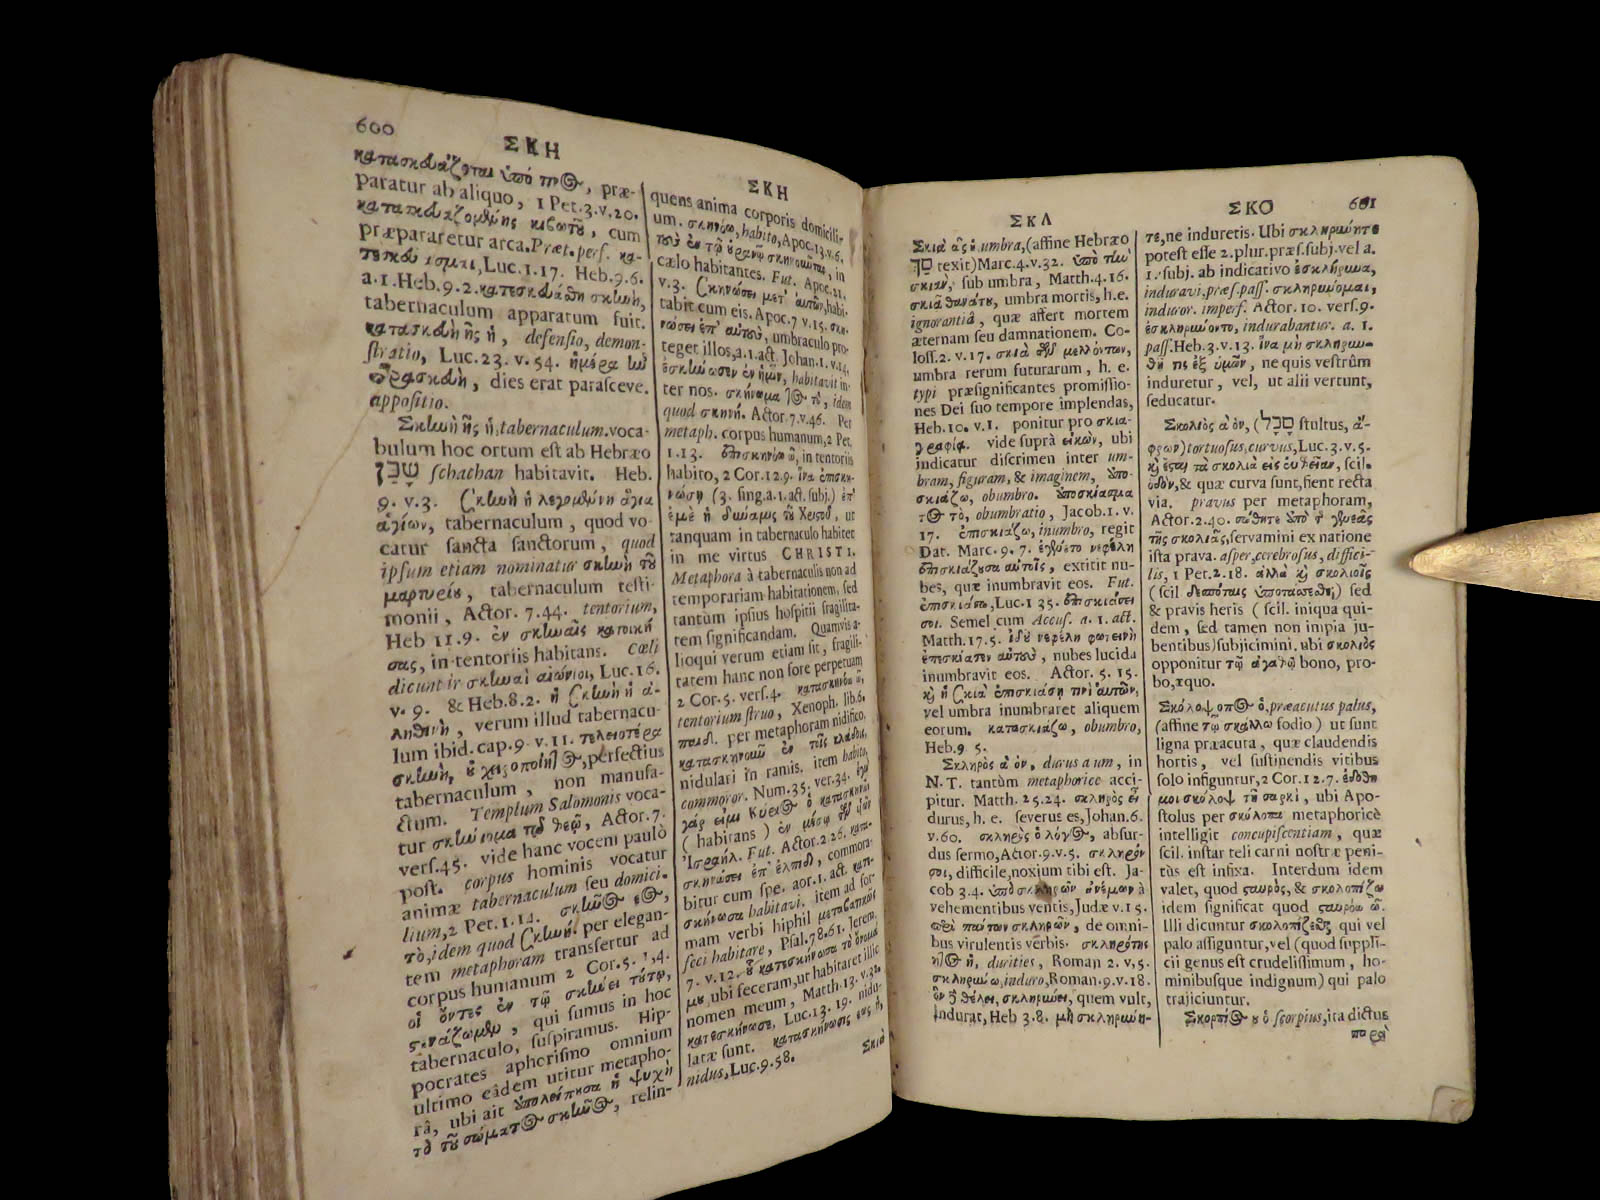 600
ΣΚΗ
κατασκευάζεται ὑπό τινος, præ-
paratur ab aliquo, 1 Pet. 3. v. 20.
κατασκευαζομένης κιβωτοῦ, cum
præpararetur arca. Præt. perf. κα-
Luc. 1. 17. Heb. 9. 6.
a. 1. Heb. 9. 2. κατεσκευάθη σκηνή,
tabernaculum apparatum fuit.
κατασκευὴ ῆς ἡ, defensio, demon-
stratio, Luc. 23. v. 54. ἡμέρα ἦν
παρασκευὴ, dies erat parasceve.
appositio.
Σκηνὴ ῆς ἡ, tabernaculum. voca-
bulum hoc ortum est ab Hebræo
שָׁכַן schathan habitavit. Heb.
9. v. 3. Σκηνὴ ἡ λεγομένη ἅγια
ἁγίων, tabernaculum, quod vo-
catur sancta sanctorum, quod
ipsum etiam nominatur σκηνὴ τοῦ
μαρτυρίου, tabernaculum testi-
monii, Actor. 7. 44. tentorium,
Heb 11. 9. ἐν σκηναῖς κατοική
σας, in tentoriis habitans. Cœli
dicuntur σκηναὶ αἰώνιοι, Luc. 16.
v. 9. & Heb. 8. 2. ἡ Σκηνὴ ἡ ἀ-
ληθινὴ, verum illud tabernacu-
lum ibid. cap. 9. v. 11. τελειοτέρα
σκηνὴ, οὐ χειροποίητος, perfectius
tabernaculum, non manufa-
ctum. Templum Salomonis voca-
tur σκήνωμα τῷ θεῷ, Actor. 7.
vers. 45. vide hanc vocem paulò
post. corpus hominis vocatur
animæ tabernaculum seu domici-
lium, 2 Pet. 1. 14. σκῆνος εος,
τὸ, idem quod Σκηνή. per elegan-
tem metaphoram transfertur ad
corpus humanum 2 Cor. 5. 1, 4.
οἱ ὄντες ἐν τῷ σκήνει τούτῳ,
στενάζομεν, qui sumus in hoc
tabernaculo, suspiramus. Hip-
pocrates aphorismo omnium
ultimo eâdem utitur metapho-
râ, ubi ait ἀπολείπουσα ἡ ψυχὴ
τὸ τοῦ σώματος σκῆνος, relin-
ΣΚΗ
quens anima corporis domicili-
um. σκηνόω, habito, Apoc. 13. v. 6.
τοὺς ἐν τῷ οὐρανῷ σκηνοῦντας, in
cælo habitantes. Fut. Apoc. 21.
v. 3. Σκηνώσει μετ᾽ αὐτῶν, habi-
tabit cum eis. Apoc. 7 v. 15. σκη-
νώσει ἐπ᾽ αὐτοὺς, umbraculo pro-
teget illos, a. 1. act. Johan. 1. v. 14.
ἐσκήνωσεν ἐν ἡμῖν, habitavit in-
ter nos. σκήνωμα τος τὸ, idem
quod σκηνή. Actor. 7. v. 46. Per
metaph. corpus humanum, 2 Pet.
1. 13. ἐπισκηνόω ῶ, in tentoriis
habito, 2 Cor. 12. 9. ἵνα ἐπισκη-
νώσῃ (3. sing. a. 1. act. subj.) ἐπ᾽
ἐμὲ ἡ δύναμις τοῦ Χριστοῦ, ut
tanquam in tabernaculo habitet
in me virtus CHRISTI.
Metaphora à tabernaculis non ad
temporariam habitationem, sed
tantùm ipsius hospitii fragilita-
tem significandam. Quamvis a-
lioqui verum etiam sit, fragili-
tatem hanc non fore perpetuam
2 Cor. 5. vers. 4. κατασκηνόω ῶ,
tentorium struo, Xenoph. lib. 6.
παιδ. per metaphoram nidifico,
κατασκηνοῦν ἐν τοῖς κλάδοις,
nidulari in ramis. item habito,
commoror. Num. 35. ver. 34. ἐγὼ
γάρ εἰμι Κύριος ὁ κατασκηνῶν
(habitans) ἐν μέσῳ τῶν υἱῶν
Ἰσραήλ. Fut. Actor. 2. 26. κατα-
σκηνώσει ἐπ᾽ ἐλπίδι, commora-
bitur cum spe. aor. 1. act. κατε-
σκήνωσα habitavi. item ad for-
mam verbi hiphil μεταβατικῶς
feci habitare, Psal. 78. 61. Jerem.
7. v. 12. οὗ κατεσκήνωσα τὸ ὄνομά
μου, ubi feceram, ut habitaret illic
nomen meum, Matth. 13. v. 32.
κατεσκήνωσε, Luc. 13. 19. nidu-
latæ sunt. κατασκήνωσις εως ἡ,
nidus, Luc. 9. 58.
Σκιὰ
ΣΚΛ
Σκιὰ ᾶς ἡ umbra, (affine Hebræo
סָךְ texit) Marc. 4. v. 32. ὑπὸ τὴν
σκιὰν, sub umbra, Matth. 4. 16.
σκιὰ θανάτου, umbra mortis, h. e.
ignorantiâ, quæ affert mortem
æternam seu damnationem. Co-
loss. 2. v. 17. σκιὰ τῶν μελλόντων,
umbra rerum futurarum, h. e.
typi præsignificantes promissio-
nes Dei suo tempore implendas,
Heb. 10. v. 1. ponitur pro σκια-
γραφία. vide suprà εἰκὼν, ubi
indicatur discrimen inter um-
bram, figuram, & imaginem, ἀπο-
σκιάζω, obumbro. ἀποσκίασμα
τος τὸ, obumbratio, Jacob. 1. v.
17. ἐπισκιάζω, inumbro, regit
Dat. Marc. 9. 7. ἐγένετο νεφέλη
ἐπισκιάζουσα αὐτοῖς, extitit nu-
bes, quæ inumbravit eos. Fut.
ἐπισκιάσω, Luc. 1 35. ἐπισκιάσει
σοι. Semel cum Accus. a. 1. act.
Matth. 17. 5. ἰδοὺ νεφέλη φωτεινὴ
ἐπεσκίασεν αὐτοὺς, nubes lucida
inumbravit eos. Actor. 5. 15.
κἂν ἡ Σκιὰ ἐπισκιάσῃ τινὶ αὐτῶν,
vel umbra inumbraret aliquem
eorum. κατασκιάζω, obumbro,
Heb. 9 5.
Σκληρὸς ὰ όν, durus a um, in
N. T. tantùm metaphorice acci-
pitur. Matth. 25. 24. σκληρὸς εἶ
durus, h. e. severus es, Johan. 6.
v. 60. σκληρὸς ὁ λόγος, absur-
dus sermo, Actor. 9. v. 5. σκληρόν
σοι, difficile, noxium tibi est. Ja-
cob 3. 4. ὑπὸ σκληρῶν ἀνέμων à
vehementibus ventis, Judæ v. 15.
περὶ πάντων σκληρῶν, de omni-
bus virulentis verbis. σκληρότης
τητος ἡ, durities, Roman 2. v, 5.
σκληρύνω, induro, Roman. 9. v. 18.
ὃν δὲ θέλει, σκληρύνει, quem vult,
indurat, Heb 3. 8. μὴ σκληρύνη-
ΣΚΟ
601
τε, ne induretis. Ubi σκληρύνητε
potest esse 2. plur. præs. subj. vel a.
1. subj. ab indicativo ἐσκλήρυνα,
induravi, præs. pass. σκληρύνομαι,
induror. imperf. Actor. 10. vers. 9.
ἐσκληρύνοντο, indurabantur. a. 1.
pass. Heb. 3. v. 13. ἵνα μὴ σκληρυν-
θῇ τις ἐξ ὑμῶν, ne quis vestrûm
induretur, vel, ut alii vertunt,
seducatur.
Σκολιὸς ὰ όν, (סָכָל stultus, ἄ-
φρων) tortuosus, curvus, Luc. 3. v. 5.
καὶ ἔσται τὰ σκολιὰ εἰς εὐθεῖαν, scil.
ὁδὸν, & quæ curva sunt, fient recta
via. pravus per metaphoram,
Actor. 2. 40. σώθητε ἀπὸ τῆς γενεᾶς
τῆς σκολιᾶς, servamini ex natione
ista prava. asper, cerebrosus, diffici-
lis, 1 Pet. 2. 18. ἀλλὰ καὶ σκολιοῖς
(scil δεσπόταις ὑποτάσσεσθε) sed
& pravis heris (scil. iniqua qui-
dem, sed tamen non impia ju-
bentibus) subjicimini. ubi σκολιὸς
opponitur τῷ ἀγαθῷ bono, pro-
bo, æquo.
Σκόλοψ οπος ὁ, præacutus palus,
(affine τῷ σκάλλω fodio) ut sunt
ligna præacuta, quæ claudendis
hortis, vel sustinendis vitibus
solo infiguntur, 2 Cor. 12. 7. ἐδόθη
μοι σκόλοψ τῇ σαρκὶ, ubi Apo-
stolus per σκόλοπα metaphoricè
intelligit concupiscentiam, quæ
scil. instar teli carni nostræ peni-
tùs est infixa. Interdum idem
valet, quod σταυρὸς, & σκολοπίζω
idem significat quod σταυρόω ῶ.
Illi dicuntur σκολοπίζεσθαι qui vel
palo affiguntur, vel (quod suppli-
cii genus est crudelissimum, ho-
minibusque indignum) qui palo
trajiciuntur.
Σκορπίος ου ὁ scorpius, ita dictus
παρὰ